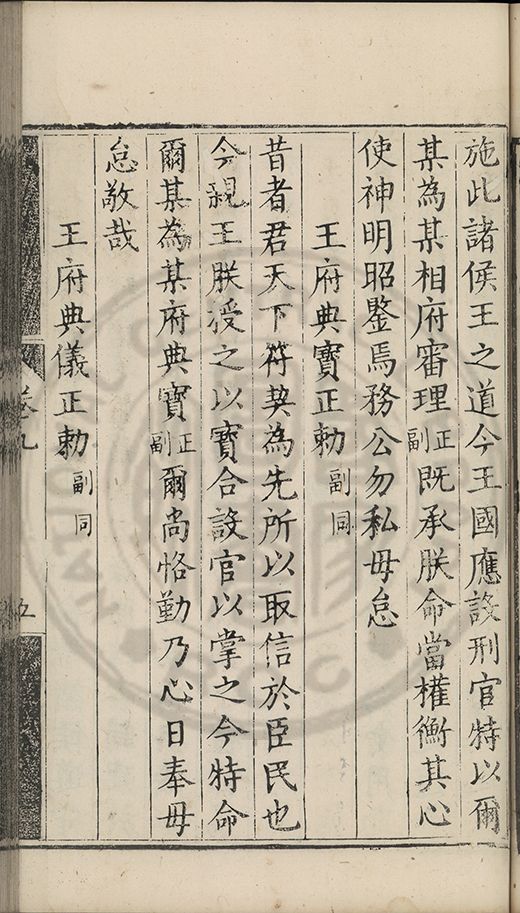 施此諸侯王之道今王國應設刑官特以爾
某為某相府審理正副既承朕命當權衡其心
使神明昭鑒焉務公勿私毋怠
王府典寶正勑副同
昔者君天下符契為先所以取信於臣民也
今親王朕授之以寶合設官以掌之今特命
爾某為某府典寶正副爾尚恪勤乃心日奉毋
怠敬哉
王府典儀正勑副同
卷九
五